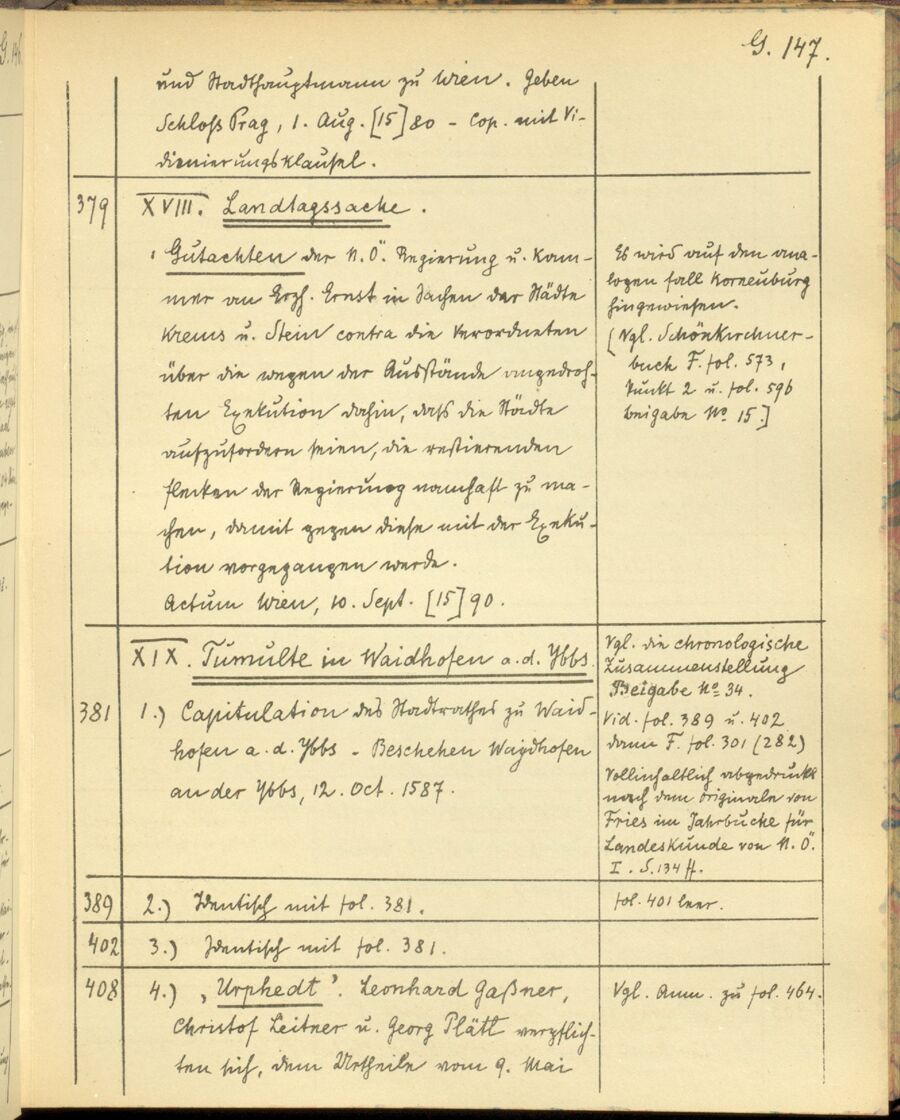 G. 147.
und Stadthauptmann zu Wien. Geben
Schloß Prag, 1. Aug. [15]80 – Cop. mit Vi-
dienierungsklausel.
379
XVIII. Landtagssache.
Gutachten der N.Ö. Regierung u. Kam-
mer an Erzh. Ernst in Sachen der Städte
Krems u. Stein contra die Verordneten
über die wegen der Ausstände angedroh-
ten Exekution dahin, daß die Städte
aufzufordern seien, die restierenden
Flecken der Regierung namhaft zu ma-
chen, damit gegen diese mit der Exeku-
tion vorgegangen werde.
Actum Wien, 10. Sept. [15]90.
Es wird auf den ana-
logen Fall Korneuburg
hingewiesen.
(Vgl. Schönkirchner-
buch F. fol. 573,
Punkt 2 u. fol. 596
Beigabe No 15.]
XIX. Tumulte in Waidhofen a.d. Ybbs.
Vgl. die chronologische
Zusammenstellung
Beigabe No 34.
381
1.) Capitulation des Stadtrathes zu Waid-
hofen a. d. Ybbs – Beschehen Waydhofen
an der Ybbs, 12. Oct. 1587.
Vid. fol. 389 u. 402
dann F. fol. 301 (282)
Vollinhaltlich abgedruckt
nach dem Originale von
Fries im Jahrbuche für
Landeskunde von N.Ö.
I. S. 134 ff.
389
2.) Identisch mit fol. 381.
fol. 401 leer.
402
3.) Identisch mit fol. 381.
408
4.) „Urphedt". Leonhard Gaßner,
Christof Leitner u. Georg Plätl verpflich-
ten sich, dem Urtheile vom 9. Mai
Vgl. Anm. zu fol. 464.